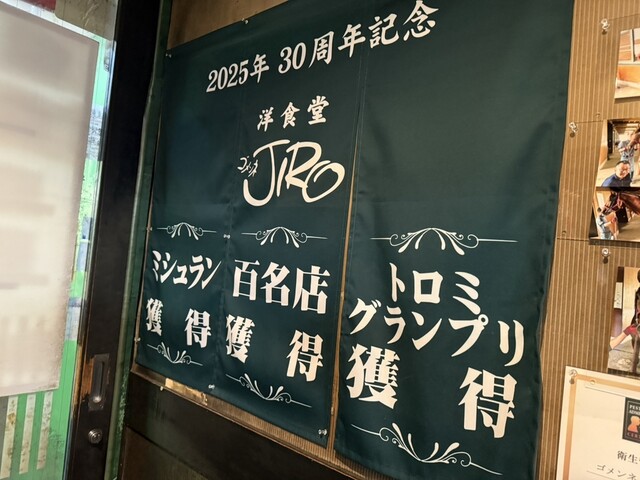 2025年 30周年記念
洋食堂
ゴメンネ
JIRO
ミシュラン
獲得
百名店
獲得
トロミ
グランプリ
獲得
衛生
ゴメンネ